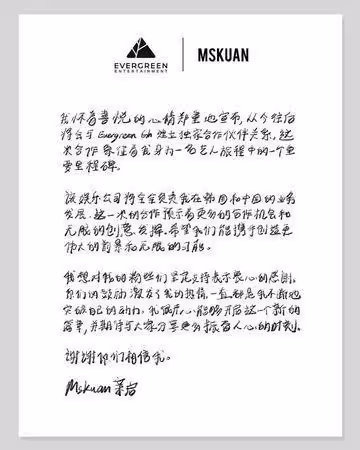 EVERGREEN
ENTERTAINMENT
MSKUAN
我怀着喜悦的心情郑重地宣布，从今往后
将会与Evergreen Ent建立独家合作伙伴关系，这
次合作象征着我身为一名艺人旅程中的一个重
要里程碑。
该娱乐公司将会全负责我在韩国和中国的业务
发展，这一次的合作预示着更多的合作机会和
无限的创意发挥，希望我们能携手创造更
伟大的前景和无限的可能。
我想对我的粉丝们坚定支持表示衷心的感谢。
你们的鼓励激发了我的热情，一直都是我不断地
突破自己的动力，我很开心能够开启这个新的
篇章，并期待与大家分享更多振奋人心的时刻。
谢谢你们相信我。
Mskuan 亲启